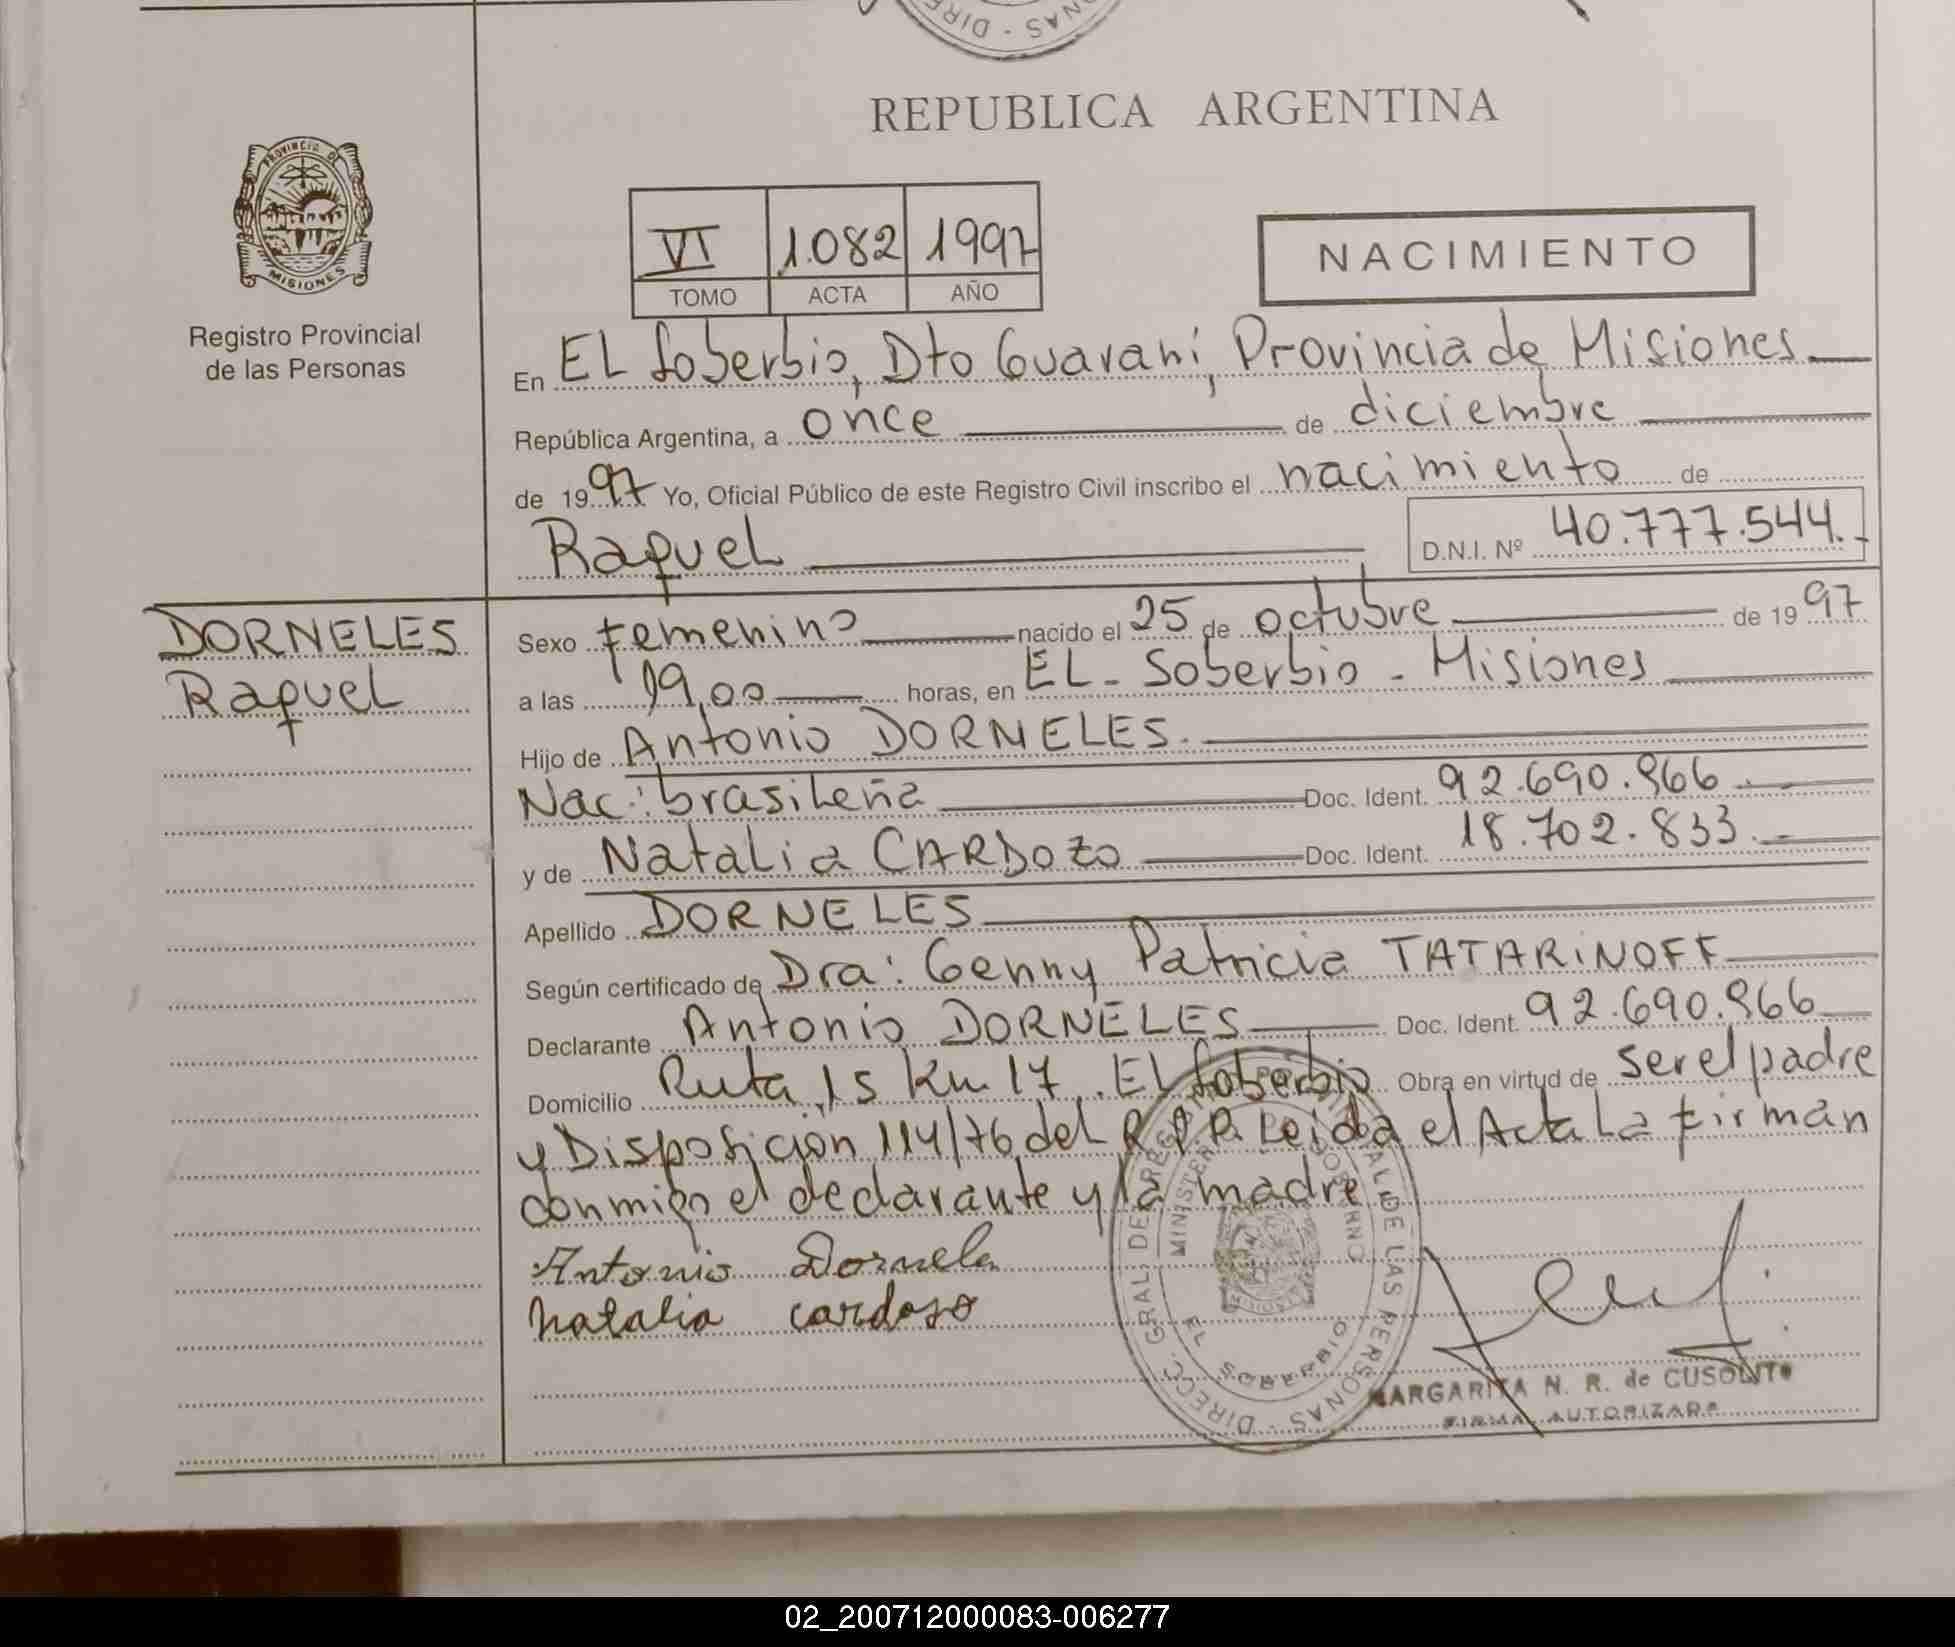 DIRE
NAS - DIRE
REPUBLICA ARGENTINA
PROVINCIA DE
MISIONES
Registro Provincial
de las Personas
VI 1.082 1997
TOMO ACTA AÑO
NACIMIENTO
En EL Soberbio, Dto Guaraní, Provincia de Misiones
República Argentina, a once de diciembre
de 1997 Yo, Oficial Público de este Registro Civil inscribo el nacimiento de
Raquel D.N.I. Nº 40.777.544.-
DORNELES
Raquel
Sexo femenino nacido el 25 de octubre de 1997
a las 19,00 horas, en EL - Soberbio - Misiones
Hijo de Antonio DORNELES.
Nac: brasileña Doc. Ident. 92.690.966.-
y de Natalia CARDOZO Doc. Ident. 18.702.833.-
Apellido DORNELES
Según certificado de Dra: Genny Patricia TATARINOFF
Declarante Antonio DORNELES Doc. Ident. 92.690.966
Domicilio Ruta 15 Km 17. EL Soberbio Obra en virtud de ser el padre
y Disposición 114/76 del R.P.P. Leida el Acta La firman
conmigo el declarante y la madre
Antonio Dornele
Natalia cardoso
DIRECC. GRAL. DE REG. PROVINCIAL DE LAS PERSONAS
MINISTERIO GOBIERNO
EL SOBERBIO
MARGARITA N. R. de CUSOLITO
FIRMA AUTORIZADA
02_200712000083-006277